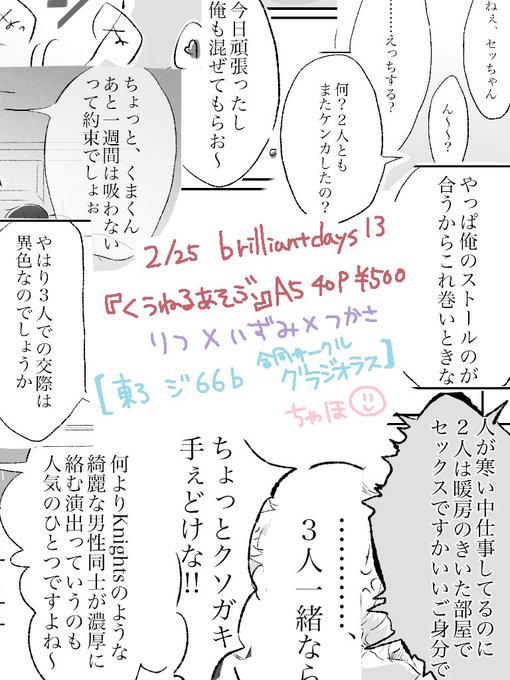 ねぇ、セッちゃん
……えっちする?
ん〜〜?
何?2人とも
またケンカしたの?
今日頑張ったし
俺も混ぜてもらお〜
ちょっと、くまくん
あと一週間は吸わない
って約束でしょぉ
やっぱ俺のストールのが
合うからこれ巻いときな
2/25 brilliantdays 13
『くうねるあそぶ』A5 40P ¥500
りつ×いずみ×つかさ
[東3 ジ66b 合同サークル
グラジオラス]
ちゃほ
やはり3人での交際は
異色なのでしょうか
人が寒い中仕事してるのに
2人は暖房のきいた部屋で
セックスですかいいご身分で
………、
3人一緒なら
ちょっとクソガキ
手ぇどけな!!
何よりKnightsのような
綺麗な男性同士が濃厚に
絡む演出っていうのも
人気のひとつですよね〜